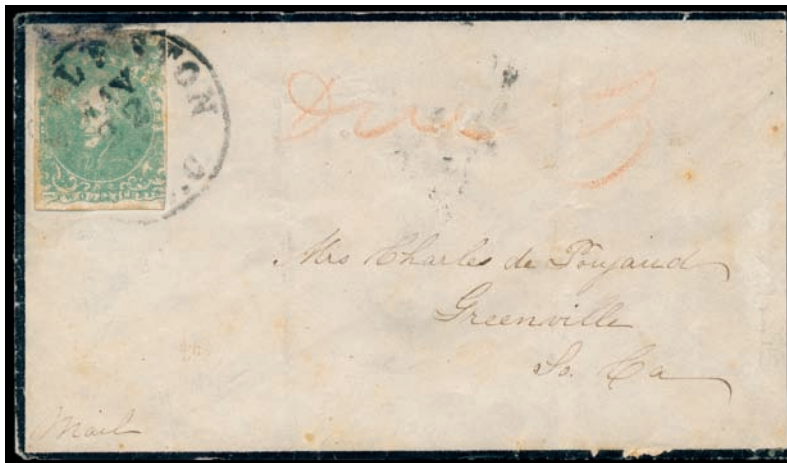 LESTON
JAN
2
Due 3
Mrs Charles de Poujaud
Greenville
So. Ca
Mail